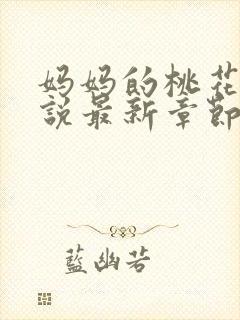 妈妈的桃花
說最新章節
藍幽若